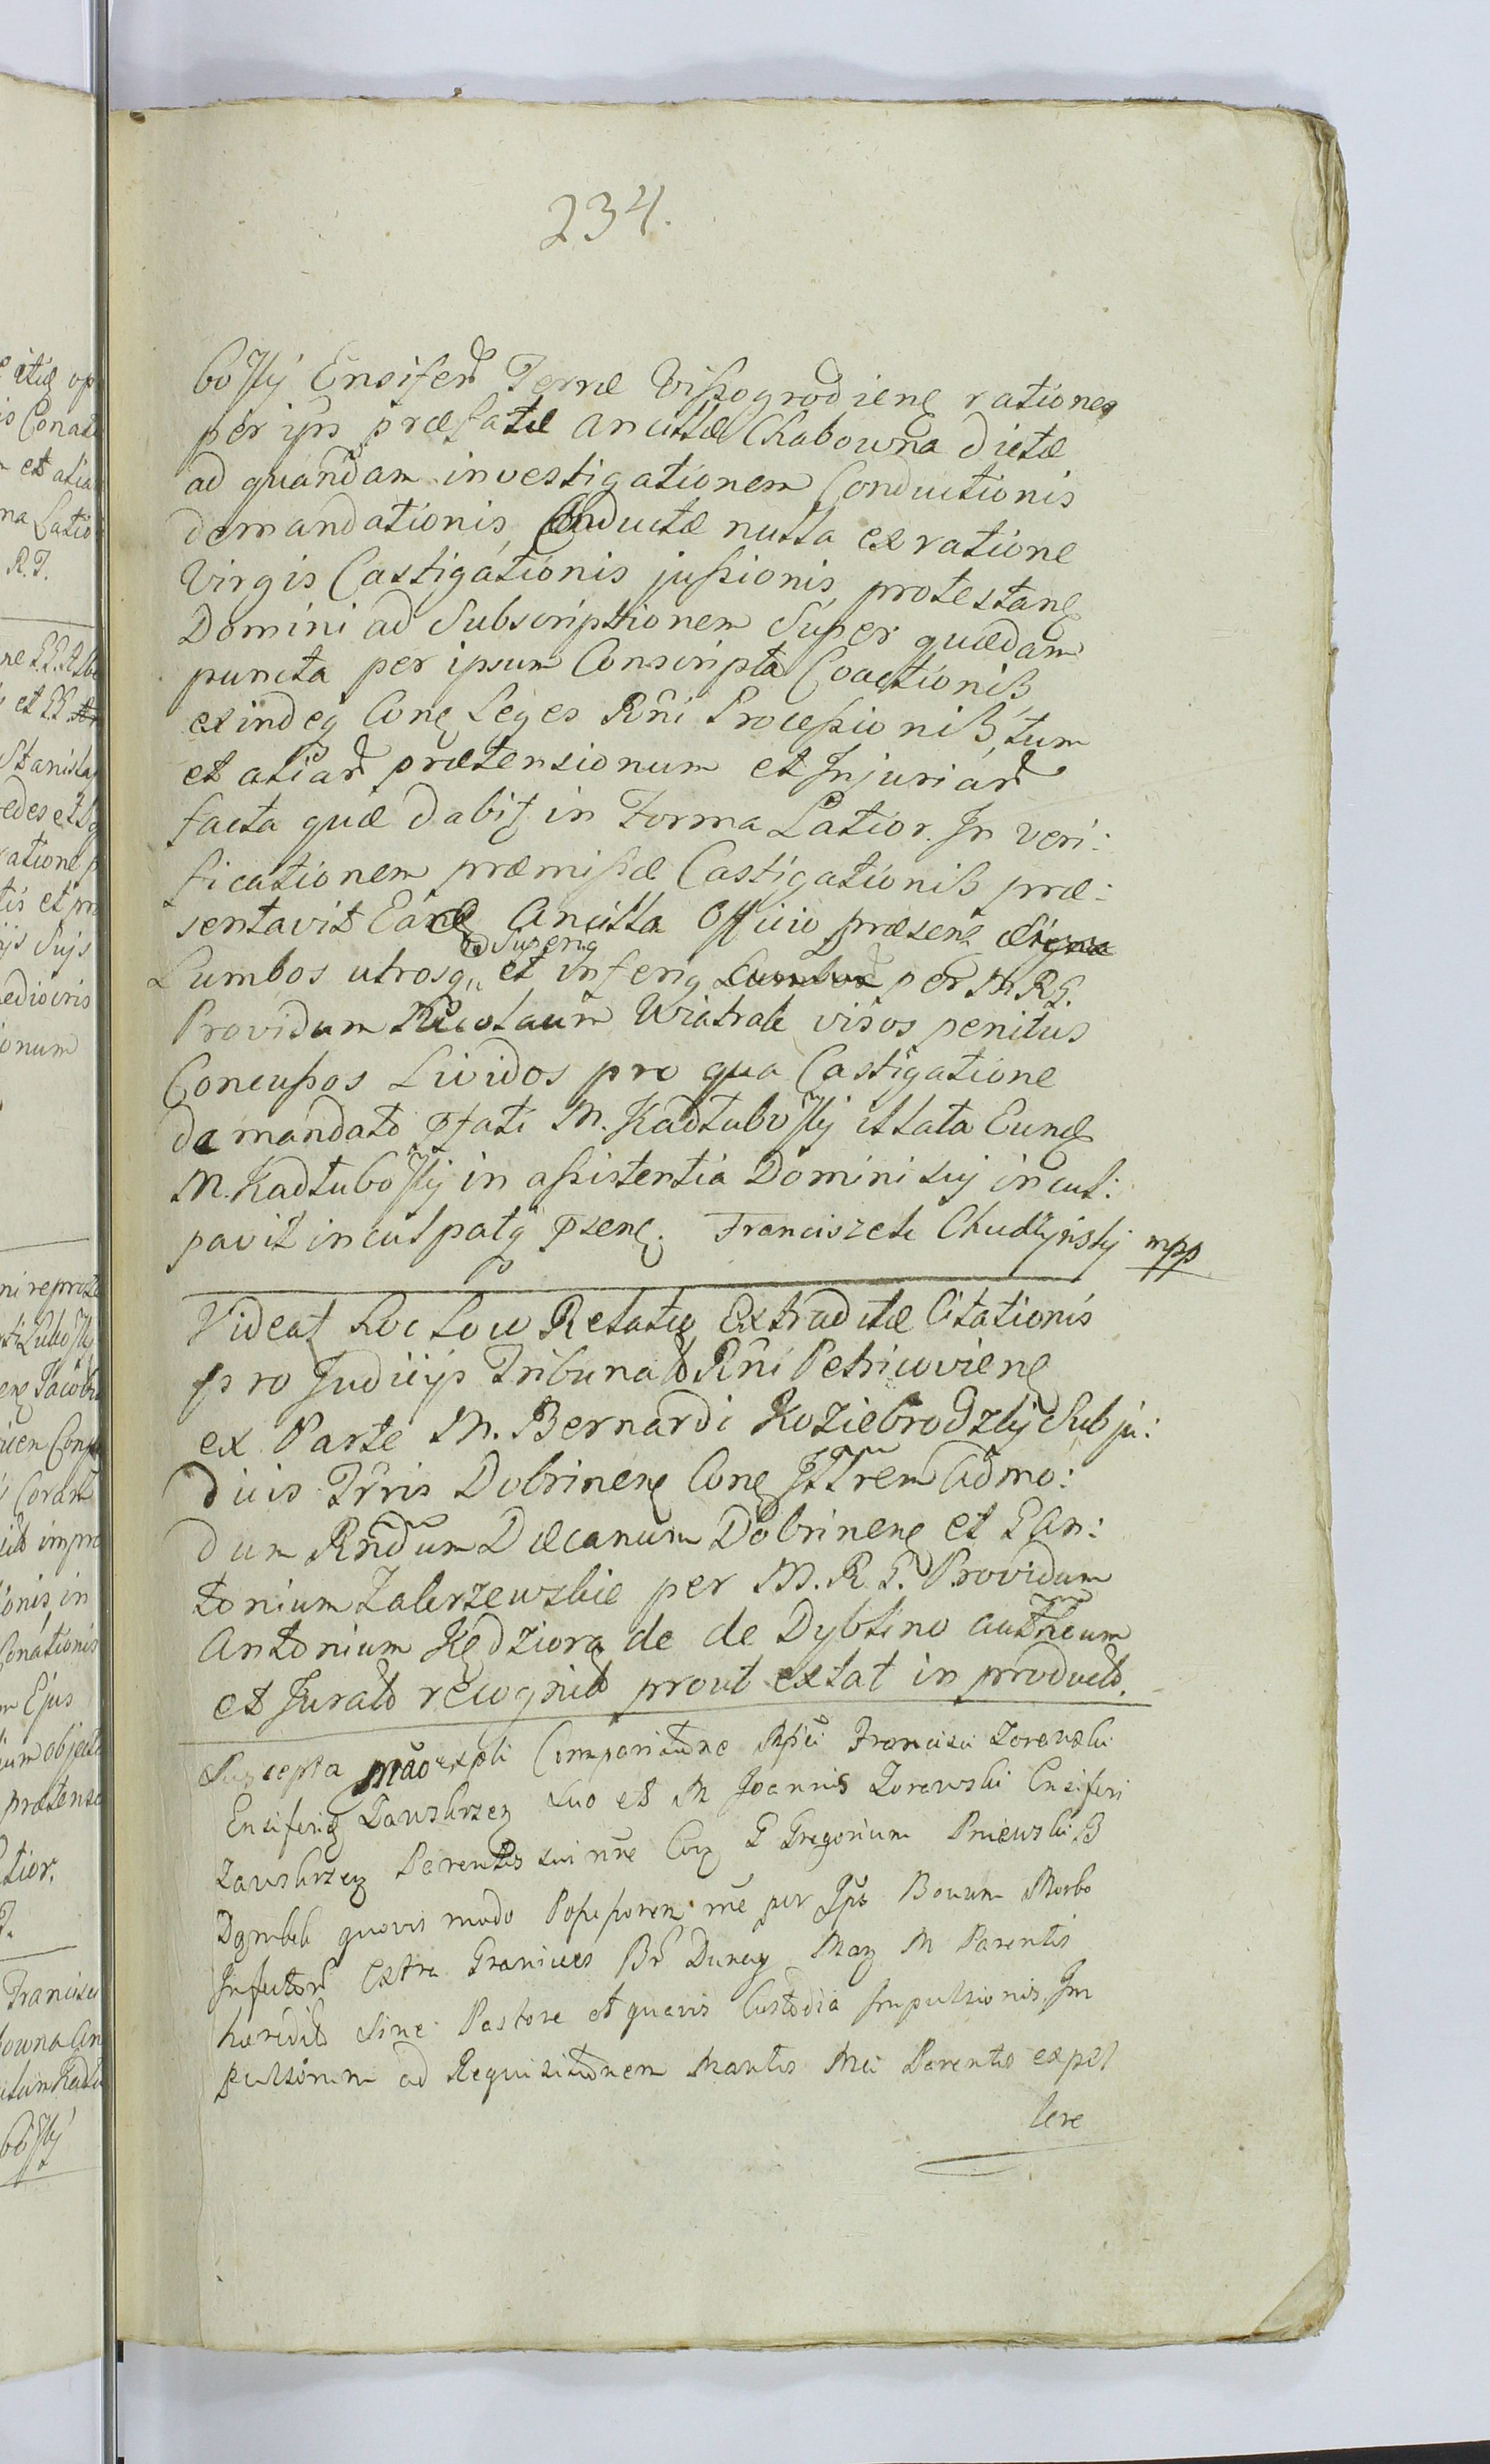 234.
boſkÿ Ensiferi Terræ Vißogrodiens rationes
per ips præfatæ Ancillæ Chabowna dictæ
ad quandam investigationem Conductionis
demandationis, Conductæ nulla ex ratione
Virgis Castigationis jußionis, protestans
Domini ad Subscriptionem Super quædam
puncta per ipsum Conscripta Coactionis
exindeq Conq Leges Rñi Proceßionis, tum
et aliar prætensionum et Injuriar
facta quæ dabit in Forma Latior. In veri:
ficationem præmißæ Castigationis præ:
sentavit Eand Ancilla Officio præsens
Superq
Lumbos utrosq et inferiq per M. R. G.
Providum Nicolaum Wiatrak visos penitus
Concußos Lividos pro qua Castigatione
de mandato pfati M. Kadłuboſkÿ illata Eund
M. Kadłuboſkÿ in aßistentia Domini sui incul:
pavit inculpatq pzens. Franciszek Chudzÿnskÿ mpp
Videat hoc loco Relatio Extraditæ Citationis
pro Judicijs Tribunal Rñi Petricoviens
ex Parte M. Bernardi Koziebrodzkÿ Subju:
dicis Trris Dobrinens Conq Illrem Admo:
dum Rñdum Decanum Dobrinens et G An:
tonium Zakrzewskie per M. R. G. Providum
Antonium Kędziora de de Dyblino authcum
et Jurato recognit prout extat in producto.
Suscepta Comparitione Mfici Francisci Zorawski
Ensiferiq Zawskrzeq Suo et M Joannis Zorawski Ensiferi
Zawskrzeq Parentis sui nñe Conq G Gregorium Pniewski
quovis modo Poßeßorem rñe per Ips Bovum Morbo
Infector Extra Granicies M Parentis
hæredit Sine Pastore et quavis Custodia Impulsionis, Im
pulsorum ad Requisitionem Parentis expel
lere